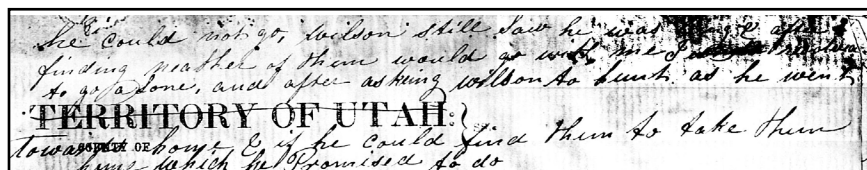 he could not go, wilson still saw he was after
finding neather of them would go with me I
to go alone, and after asking wilson to hunt, as he went
TERRITORY OF UTAH:
COUNTY OF
towards home, & if he could find them to take them
home which he Promised to do